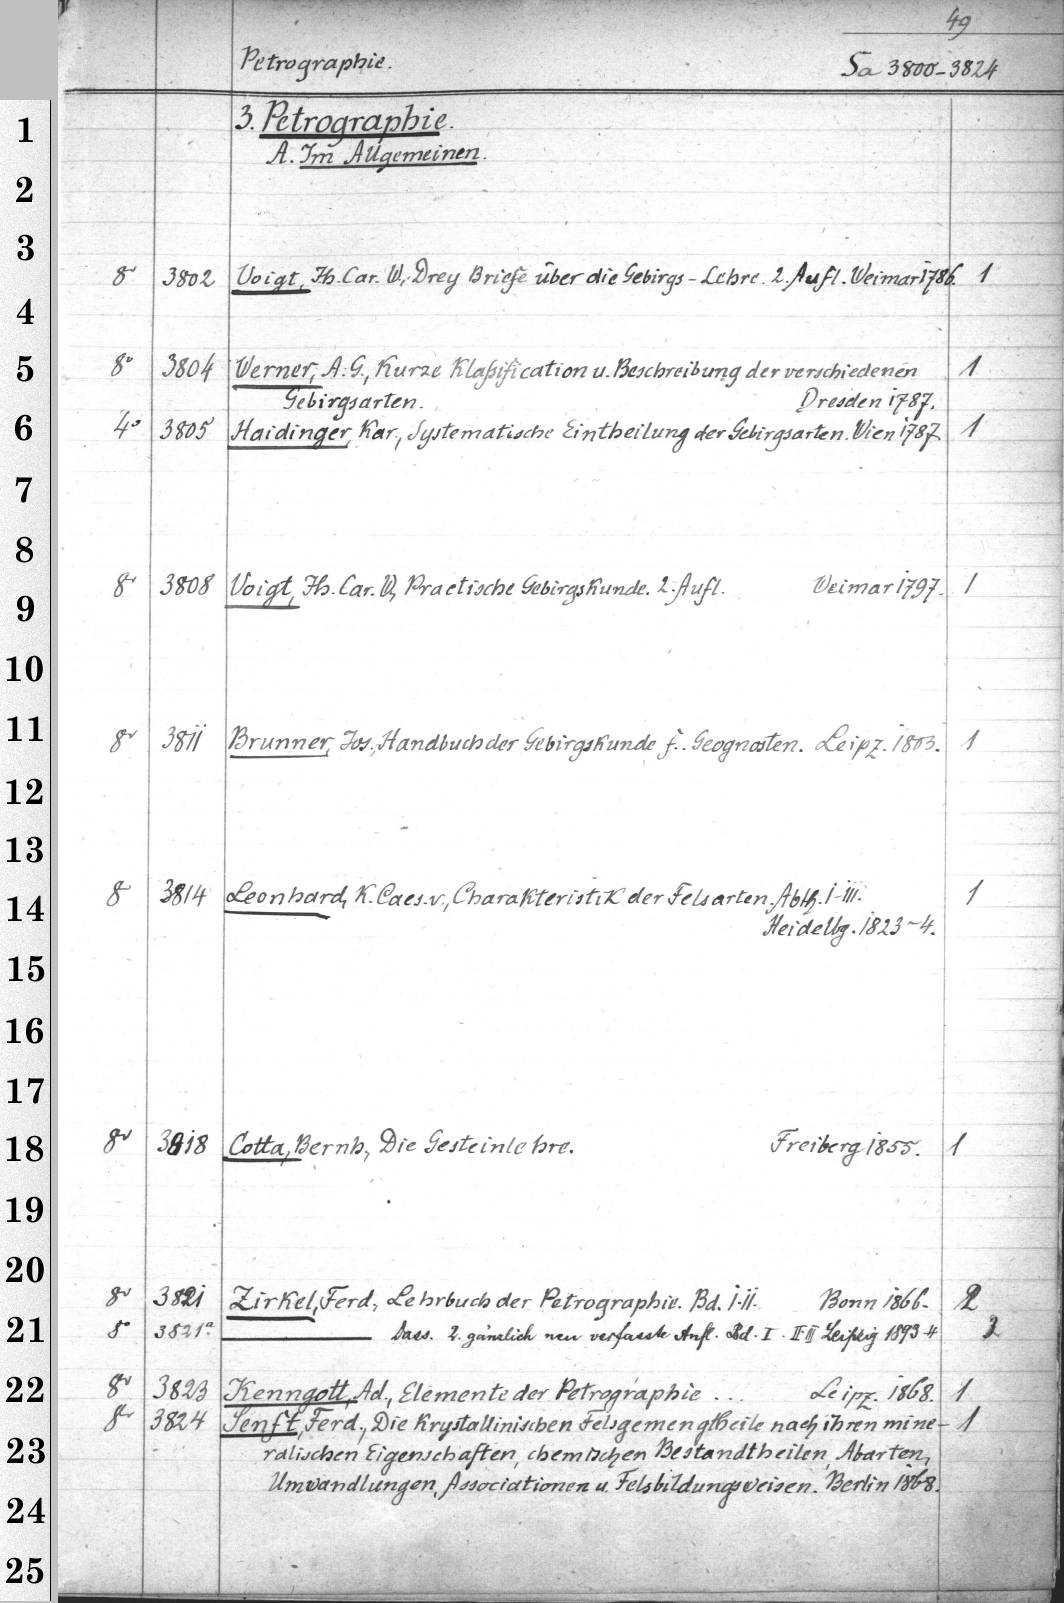 49
Petrographie. Sa 3800-3824
1 3. Petrographie.
A. Im Allgemeinen.
2
3
8° 3802 Voigt, Jh. Car. W., Drey Briefe über die Gebirgs-Lehre. 2. Aufl. Weimar 1786. 1
4
5 8° 3804 Werner, A. G., Kurze Klaßification u. Beschreibung der verschiedenen 1
Gebirgsarten. Dresden 1787.
6 4° 3805 Haidinger, Kar., Systematische Eintheilung der Gebirgsarten. Wien 1787. 1
7
8
8° 3808 Voigt, Jh. Car. W., Practische Gebirgskunde. 2. Aufl. Weimar 1797. 1
9
10
11 8° 3811 Brunner, Jos., Handbuch der Gebirgskunde f. Geognosten. Leipz. 1803. 1
12
13
14 8° 3814 Leonhard, K. Caes. v., Charakteristik der Felsarten. Abth. I-III. 1
Heidelbg. 1823-4.
15
16
17
18 8° 3818 Cotta, Bernh., Die Gesteinlehre. Freiberg 1855. 1
19
20
8° 3821 Zirkel, Ferd., Lehrbuch der Petrographie. Bd. I-II. Bonn 1866. 2
21 8° 3821a Dass. 2. gänzlich neu verfasste Aufl. Bd. I. II-III Leipzig 1893-4 3
22 8° 3823 Kenngott, Ad., Elemente der Petrographie ... Leipz. 1868. 1
8° 3824 Senft, Ferd., Die Krystallinischen Felsgemengtheile nach ihren mine- 1
23 ralischen Eigenschaften, chemischen Bestandtheilen, Abarten,
Umwandlungen, Associationen u. Felsbildungsweisen. Berlin 1868.
24
25